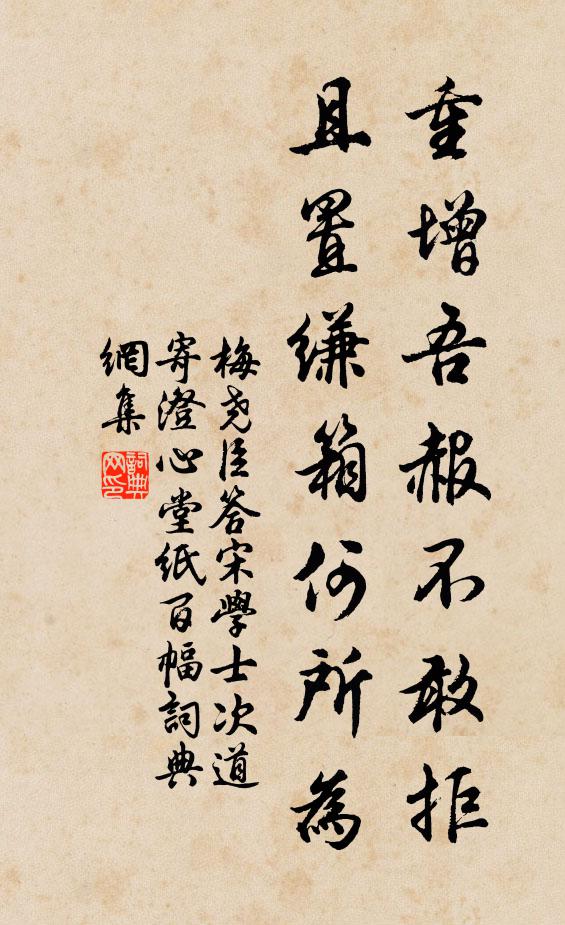 重增吾赧不敢拒
且置縑箱何所為
梅堯臣答宋學士次道
寄澄心堂紙百幅詞典
網集
詞典網印